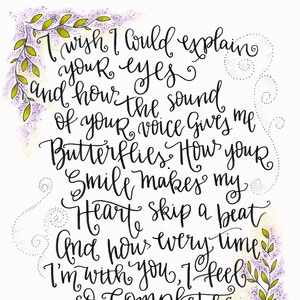 I wish I could explain
your eyes
and how the sound
of your voice Gives me
Butterflies. How your
Smile makes my
Heart skip a beat
And how every time
I'm with you, I feel
so Complete